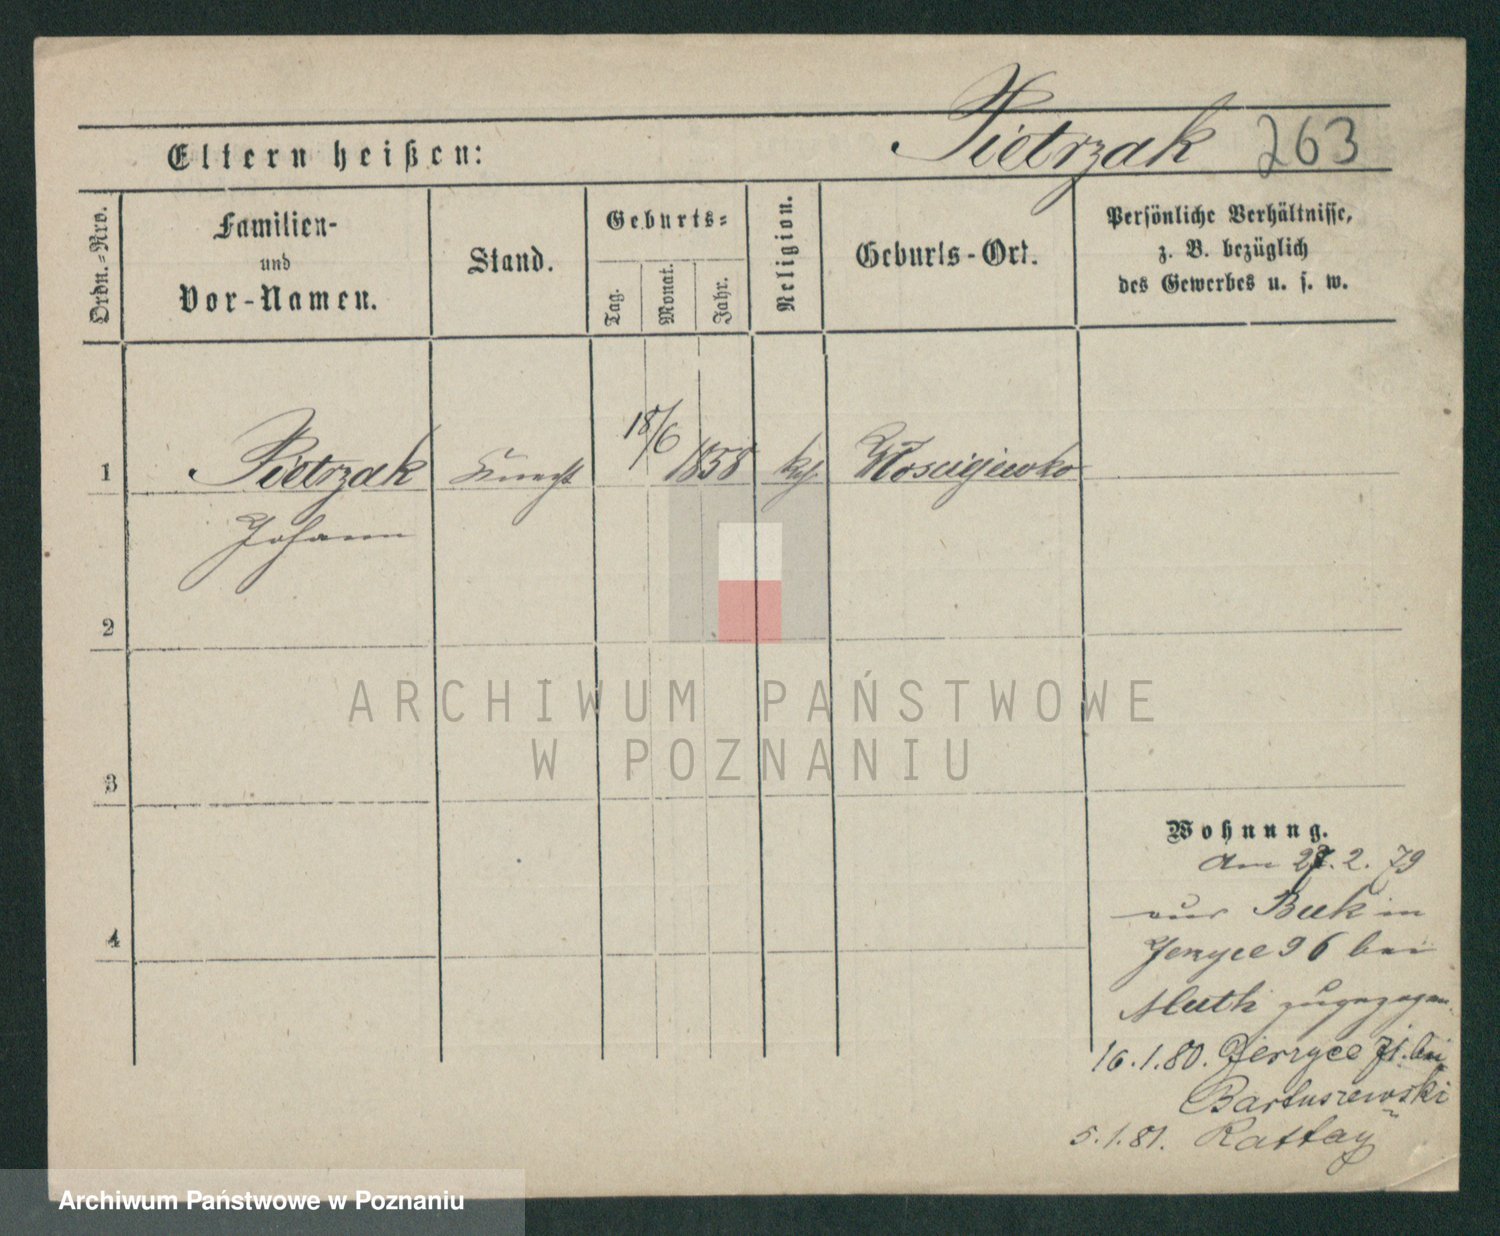 Pietrzak 263
Eltern heißen:
Ordn.-Nro.
Familien-
und
Vor-Namen.
Stand.
Geburts-
Tag.
Monat.
Jahr.
Religion.
Geburts-Ort.
Persönliche Verhältnisse,
z. B. bezüglich
des Gewerbes u. s. w.
1 Pietrzak Knecht 18/6 1858 kth. Włosciejewko
Johann
2
3
4
ARCHIWUM PAŃSTWOWE
W POZNANIU
Wohnung.
Am 27.2.79
aus Buk in
Jerzyce 96 bei
Muth zugezogen.
16.1.80. Jerzyce 71. bei
Bartuszewski
5.1.81. Rattay
Archiwum Państwowe w Poznaniu